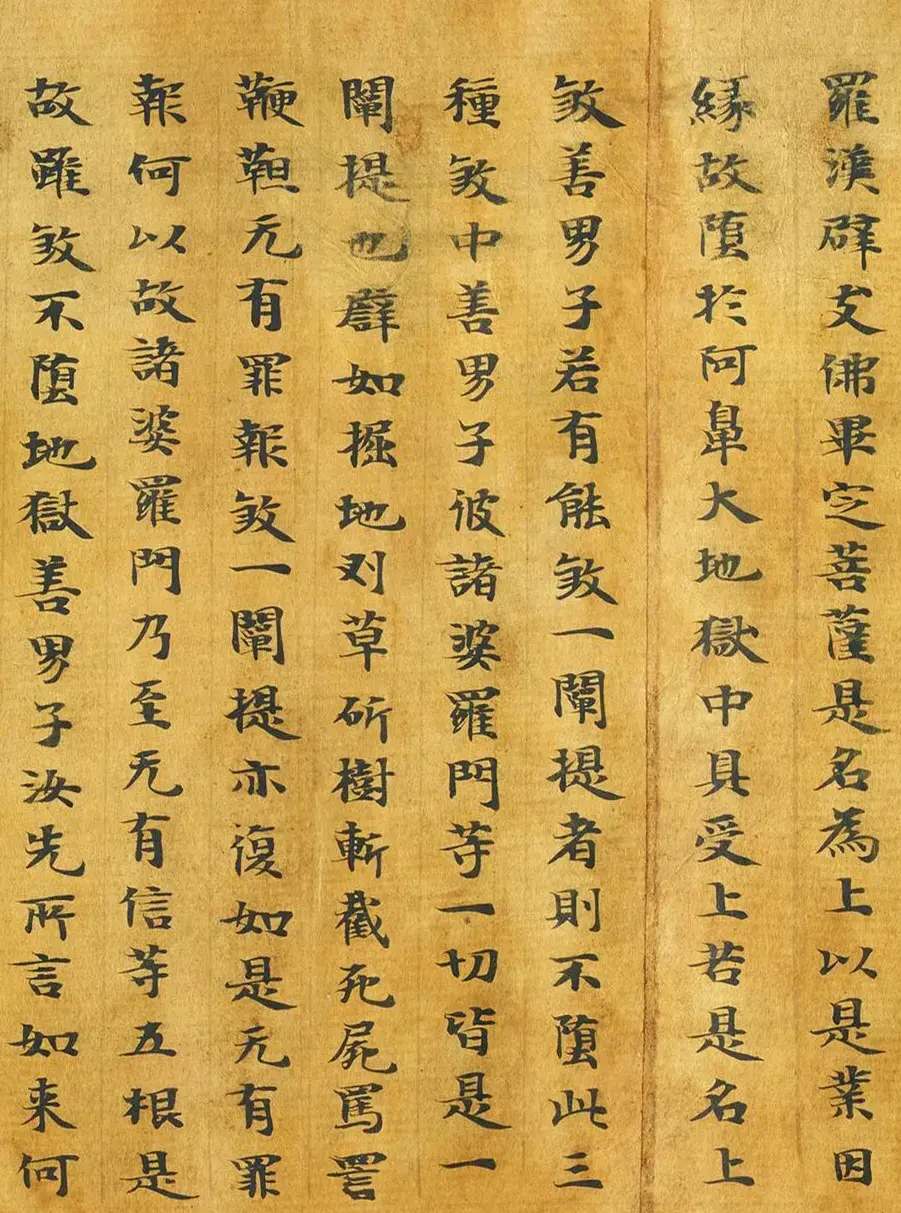 羅漢辟支佛畢定菩薩是名為上以是業因
緣故墮於阿鼻大地獄中具受上苦是名上
煞善男子若有能煞一闡提者則不墮此三
種煞中善男子彼諸婆羅門等一切皆是一
闡提也譬如掘地刈草斫樹斬截死屍罵詈
鞭靼无有罪報煞一闡提亦復如是无有罪
報何以故諸婆羅門乃至无有信等五根是
故雖煞不墮地獄善男子汝先所言如来何